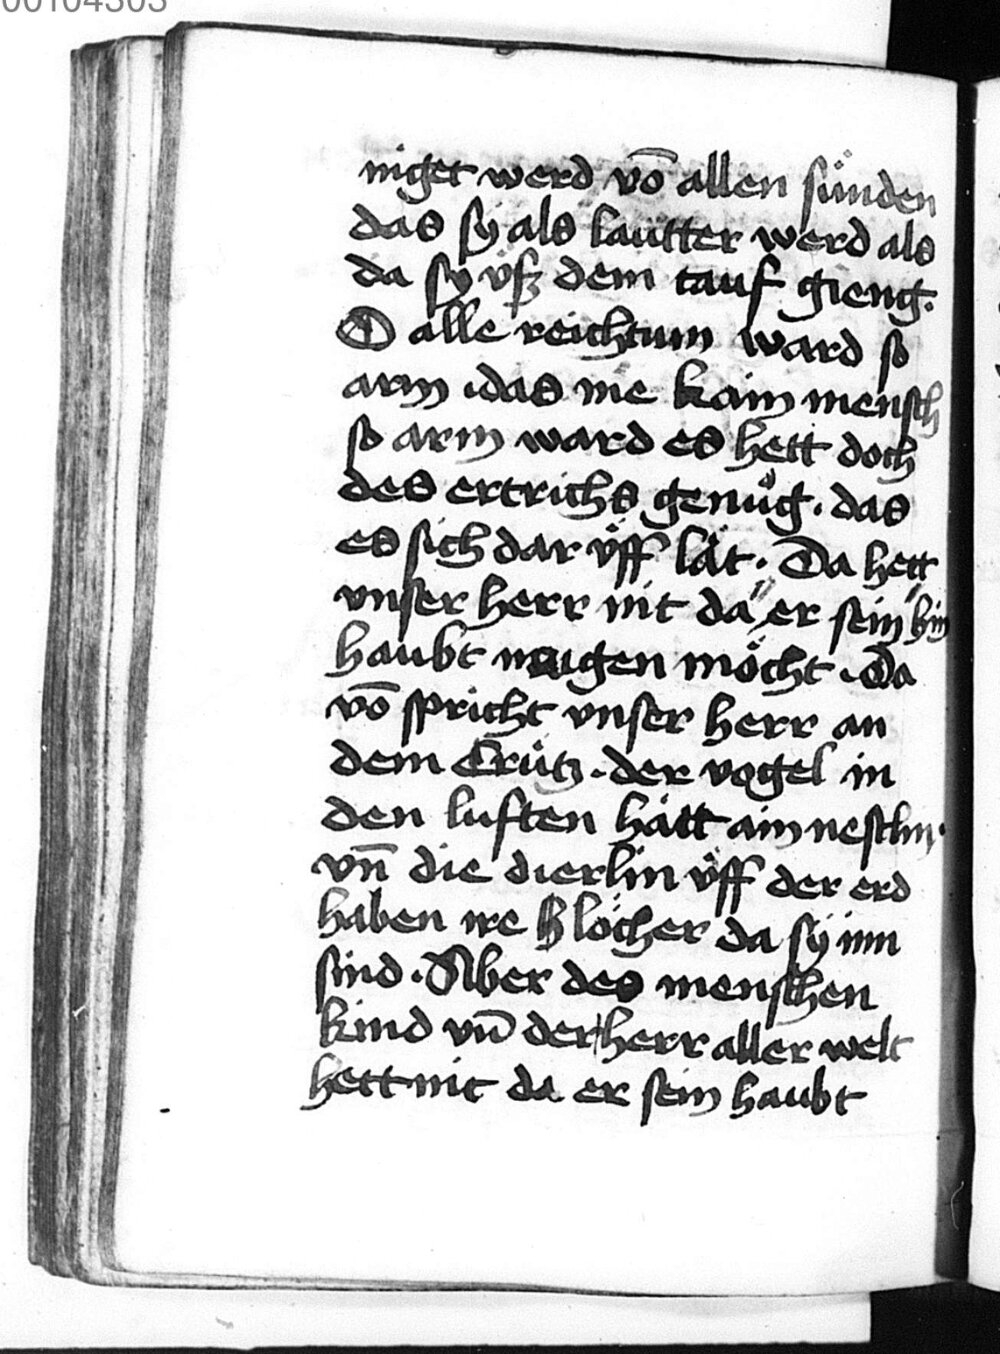 00104303
niget werd vō allen sünden
das sÿ als lautter werd als
da sy vß dem tauf gieng.
O alle reichtum ward so
arm .das nie kain mensch
so arm ward es hett doch
des ertrichs genůg. das
es sich dar vͤff lät. Da hett
vnser herr nit da er sein hin
haubt naigen möcht .Da
vō spricht vnser herr an
dem Crütz. der vogel in
den luften hått ain nestlin.
vn̄ die dierlin vͤff der erd
haben ire löcher da sÿ inn
sind. Aber des menschen
kind vn̄ der herr aller welt
hett nit da er sein haubt